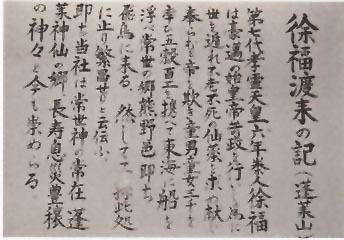 徐福渡来の記(蓬莱山)
第七代孝霊天皇六年秦人徐福
は暴邁の始皇帝苛政を行しゝ為に
世を遁れ不老不死の仙薬を求め献じ
奉らむと帝を欺き童男童女三千を
率ひ五穀百工を携へて東海に船を
浮べ常世の郷熊野邑即ち
飛鳥に来る 然して 此処
に止り繁昌せりと云伝ふ
即ち当社は常世神の常在 蓬
莱神仙の郷 長寿息災豊穣
の神々と今も崇めらる